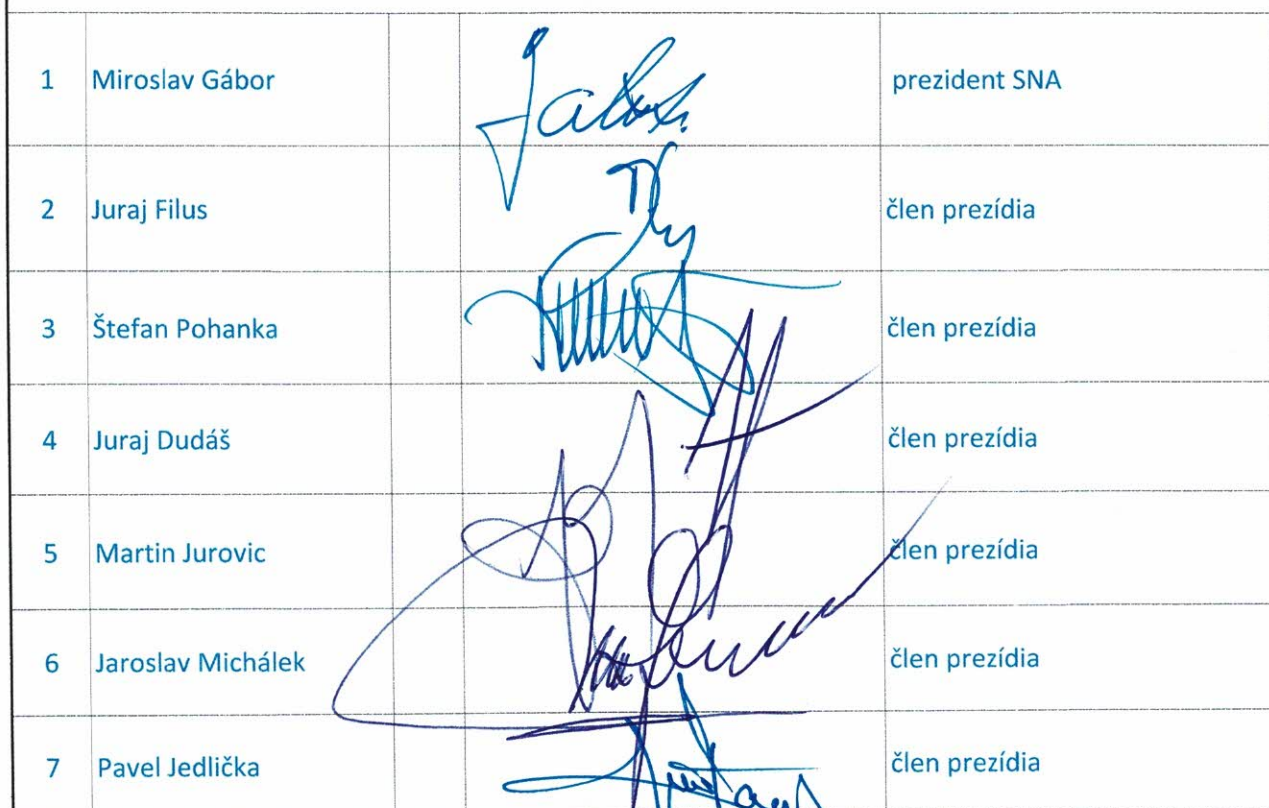 1 Miroslav Gábor prezident SNA
2 Juraj Filus člen prezídia
3 Štefan Pohanka člen prezídia
4 Juraj Dudáš člen prezídia
5 Martin Jurovic člen prezídia
6 Jaroslav Michálek člen prezídia
7 Pavel Jedlička člen prezídia